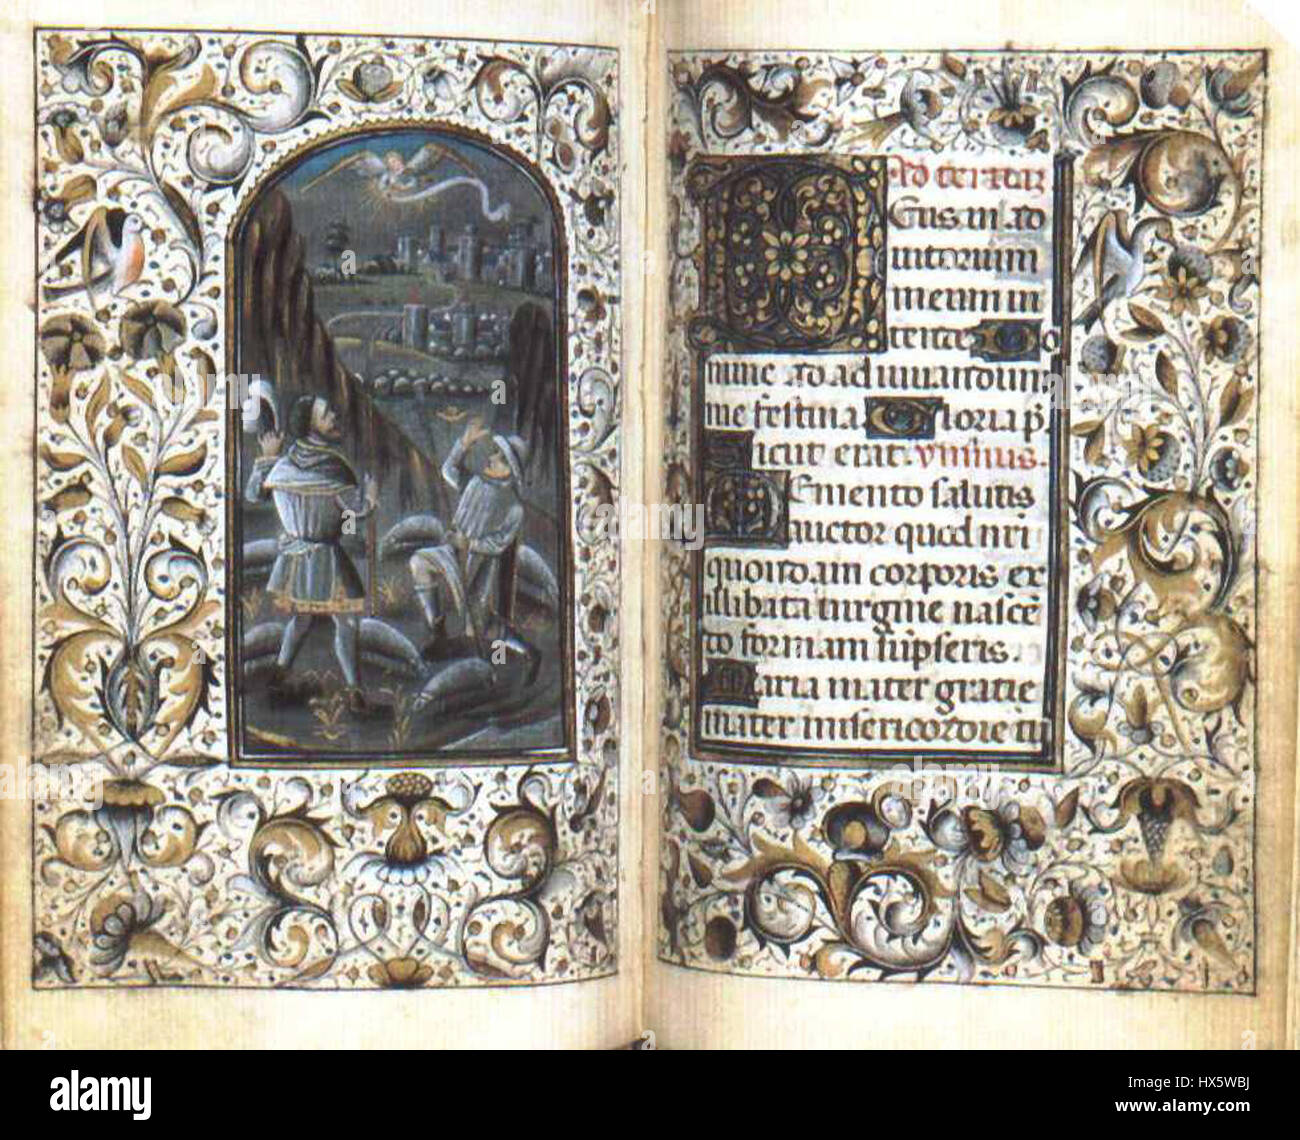 Ad tertiaz
Eus in ad
iutorium
meum in
tende Do
mine ad adiuuandum
me festina Gloria p̄.
Sicut erat. ymnus.
Memento salutis
auctor quod nr̄i
quondam corporis ex
illibata uirgine nascē
do formam supseris.
Maria mater gratie
mater misericordie tu
alamy
Image ID: HX5WBJ
www.alamy.com